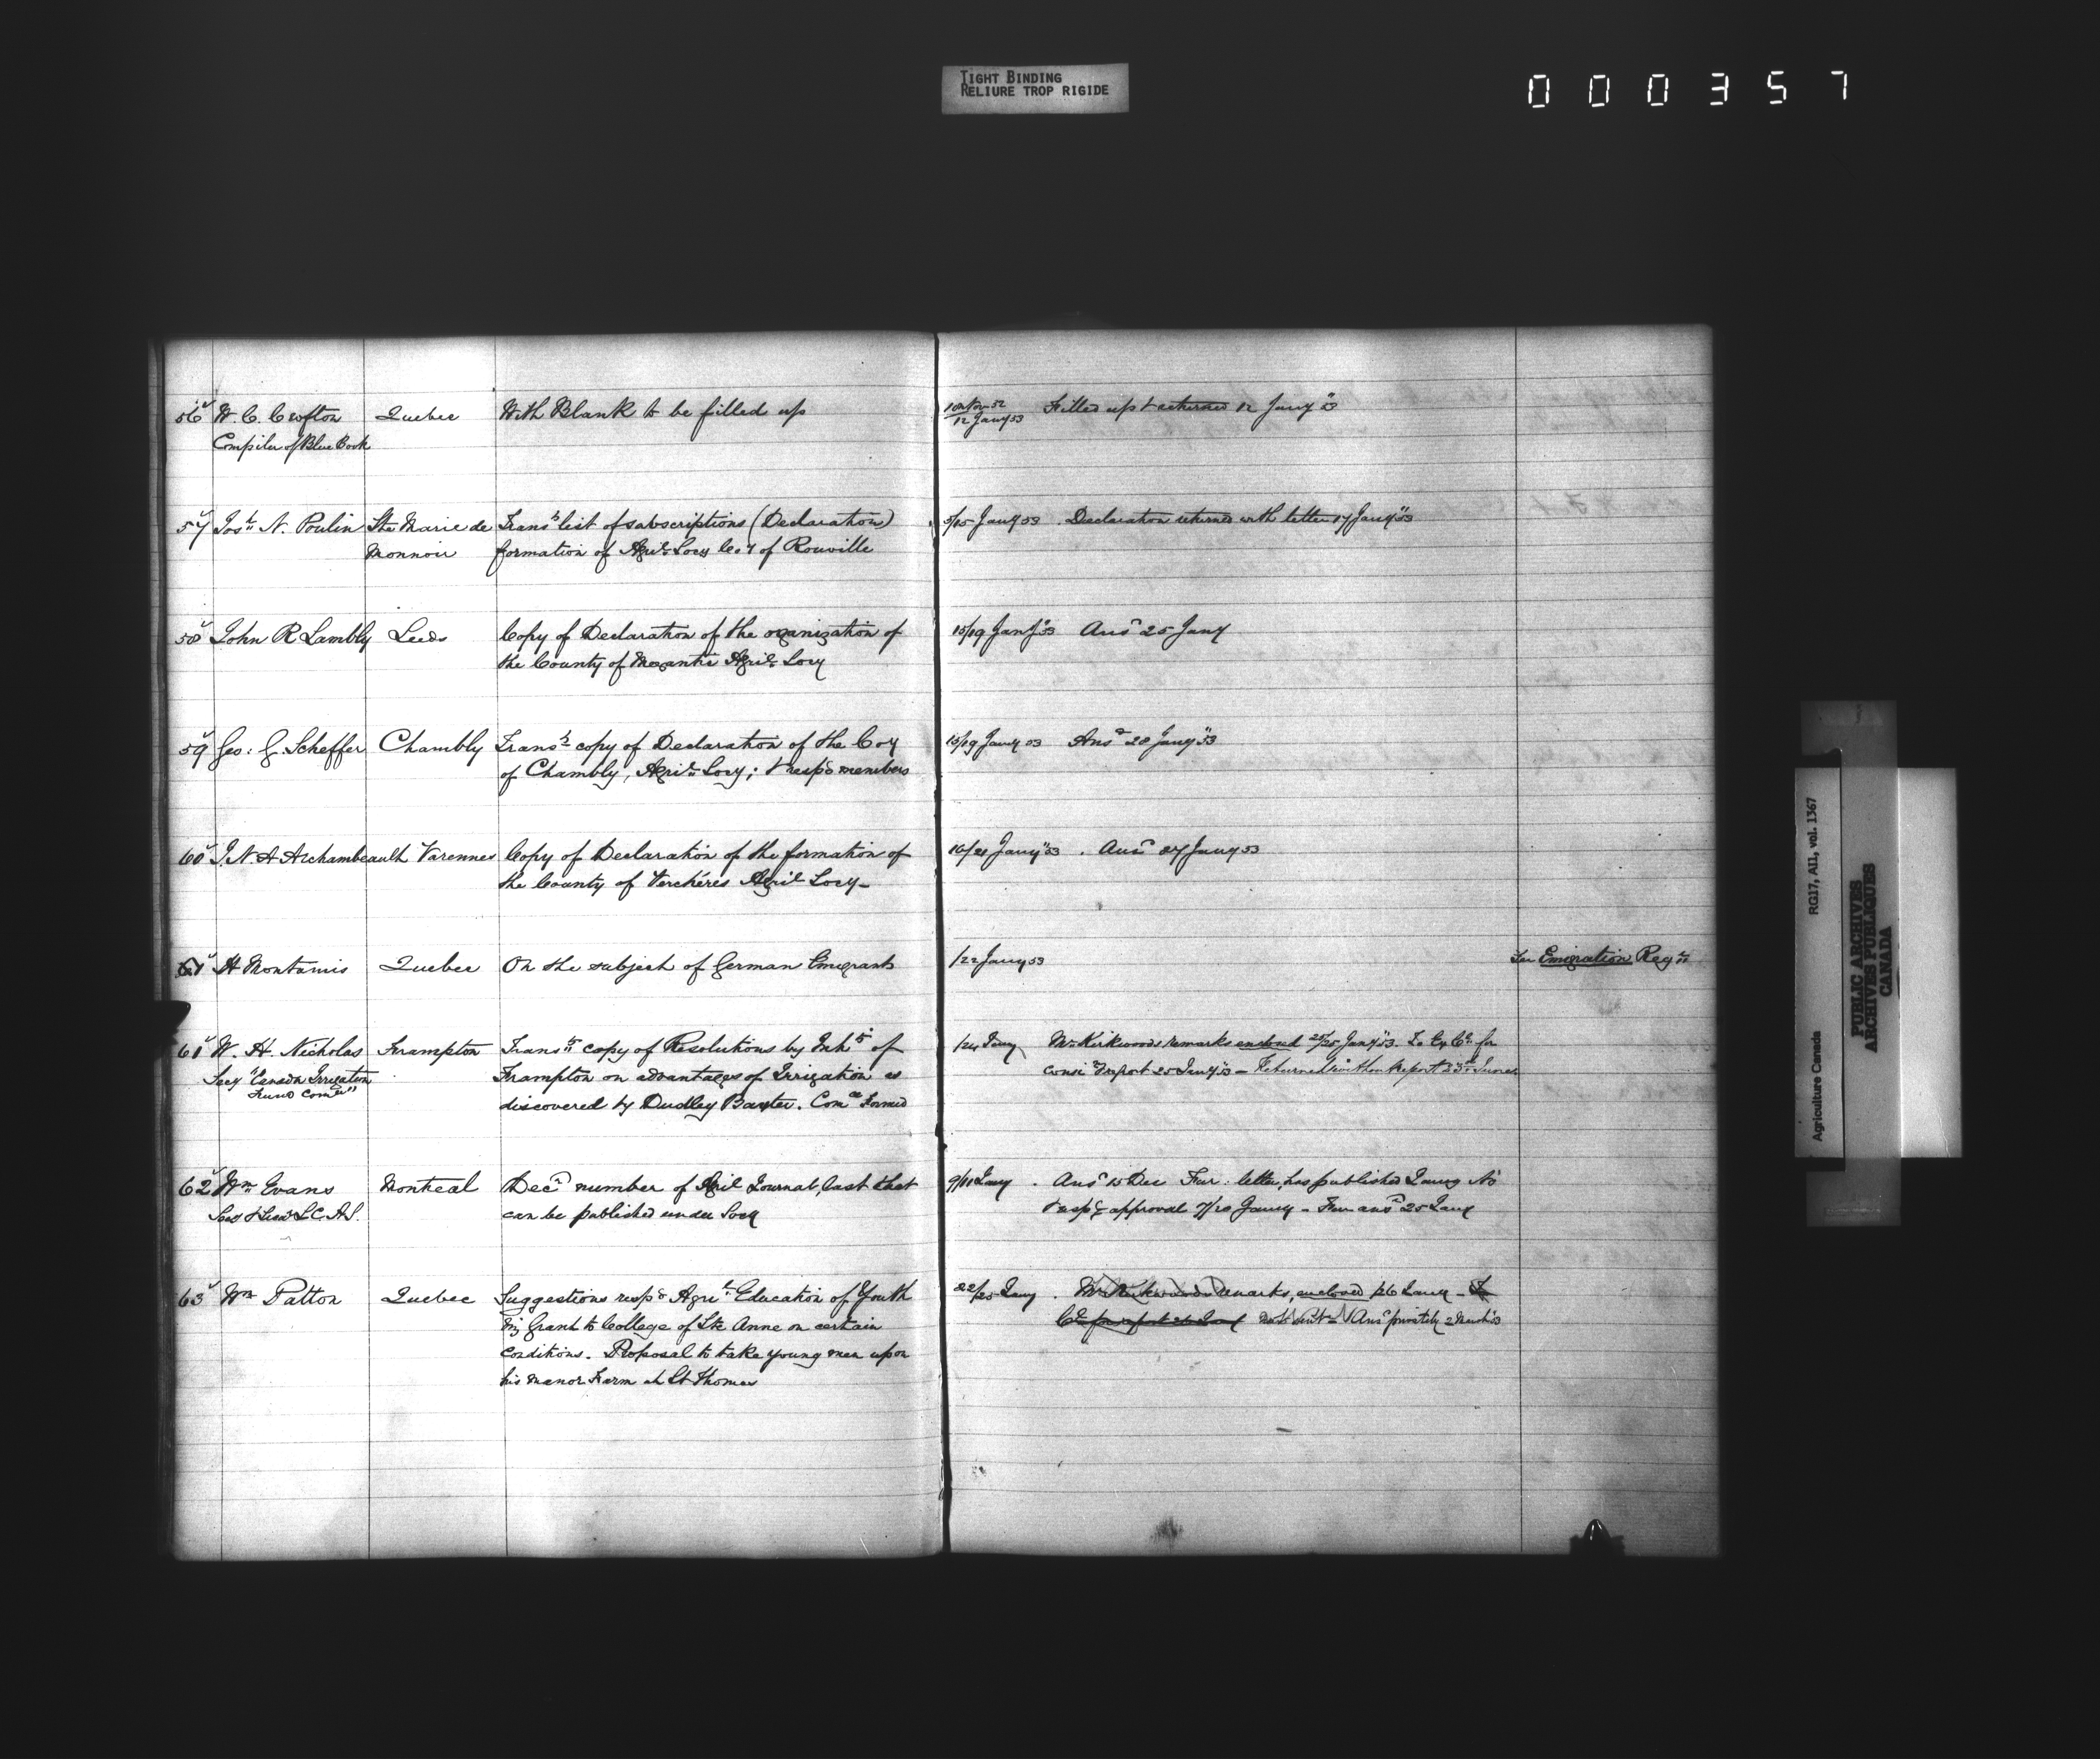 TIGHT BINDING
RELIURE TROP RIGIDE
000357
56 W. C. Crofton Quebec With Blank to be filled up
Compiler of Blue Book
12 Jany 53 Filled up & returned 12 Jany 53
57 Josh N. Poulin Ste Marie de Transs list of subscriptions (Declaration)
Monnoir formation of Agril Socy Coy of Rouville
5/15 Jany 53 Declaration returned with letter 17 Jany 53
58 John R Lambly Leeds Copy of Declaration of the organization of
the County of Megantic Agril Socy
15/19 Jany 53 Ansd 25 Jany
59 Geo: G. Scheffer Chambly Transs copy of Declaration of the Coy
of Chambly, Agril Socy; & respg members
15/19 Jany 53 Ansd 28 Jany 53
60 J. N. A Archambeault Varennes Copy of Declaration of the formation of
the County of Verchéres Agril Socy
Jany 53 . Ansd 27 Jany 53
61 H Montamis Quebec On the subject of German Emigrants
/22 Jany 53
See Emigration Regr
61 W. H. Nicholas Frampton Transs copy of Resolutions by Inhts of
Secy "Canada Irrigation Frampton on advantages of Irrigation as
Fund Comee" discovered by Dudley Baxter. Comee formed
/24 Jany Mr Kirkwoods remarks enclosed 25 Jany 53. To Ex Cl for
consi & report 25 Jany 53 - Returned without Report
62 Wm Evans Montreal Decr number of Agril Journal, last that
Secy & Treasr L.C.A.S. can be published under Socy
9/11 Jany . Ansd 15 Dec Fur: letter, has published Jany No
& respg approval 7/20 Jany - Fur ansd 25 Jany
63 Wm Patton Quebec Suggestions respg Agril Education of Youth
by Grant to College of Ste Anne on certain
conditions. Proposal to take young men upon
his Manor Farm at St Thomas
22/25 Jany . Mr Kirkwoods remarks, enclosed 26 Jany - To
not sent - Ansd privately 2 March 53
Agriculture Canada RG17, AII, vol. 1367
PUBLIC ARCHIVES
ARCHIVES PUBLIQUES
CANADA